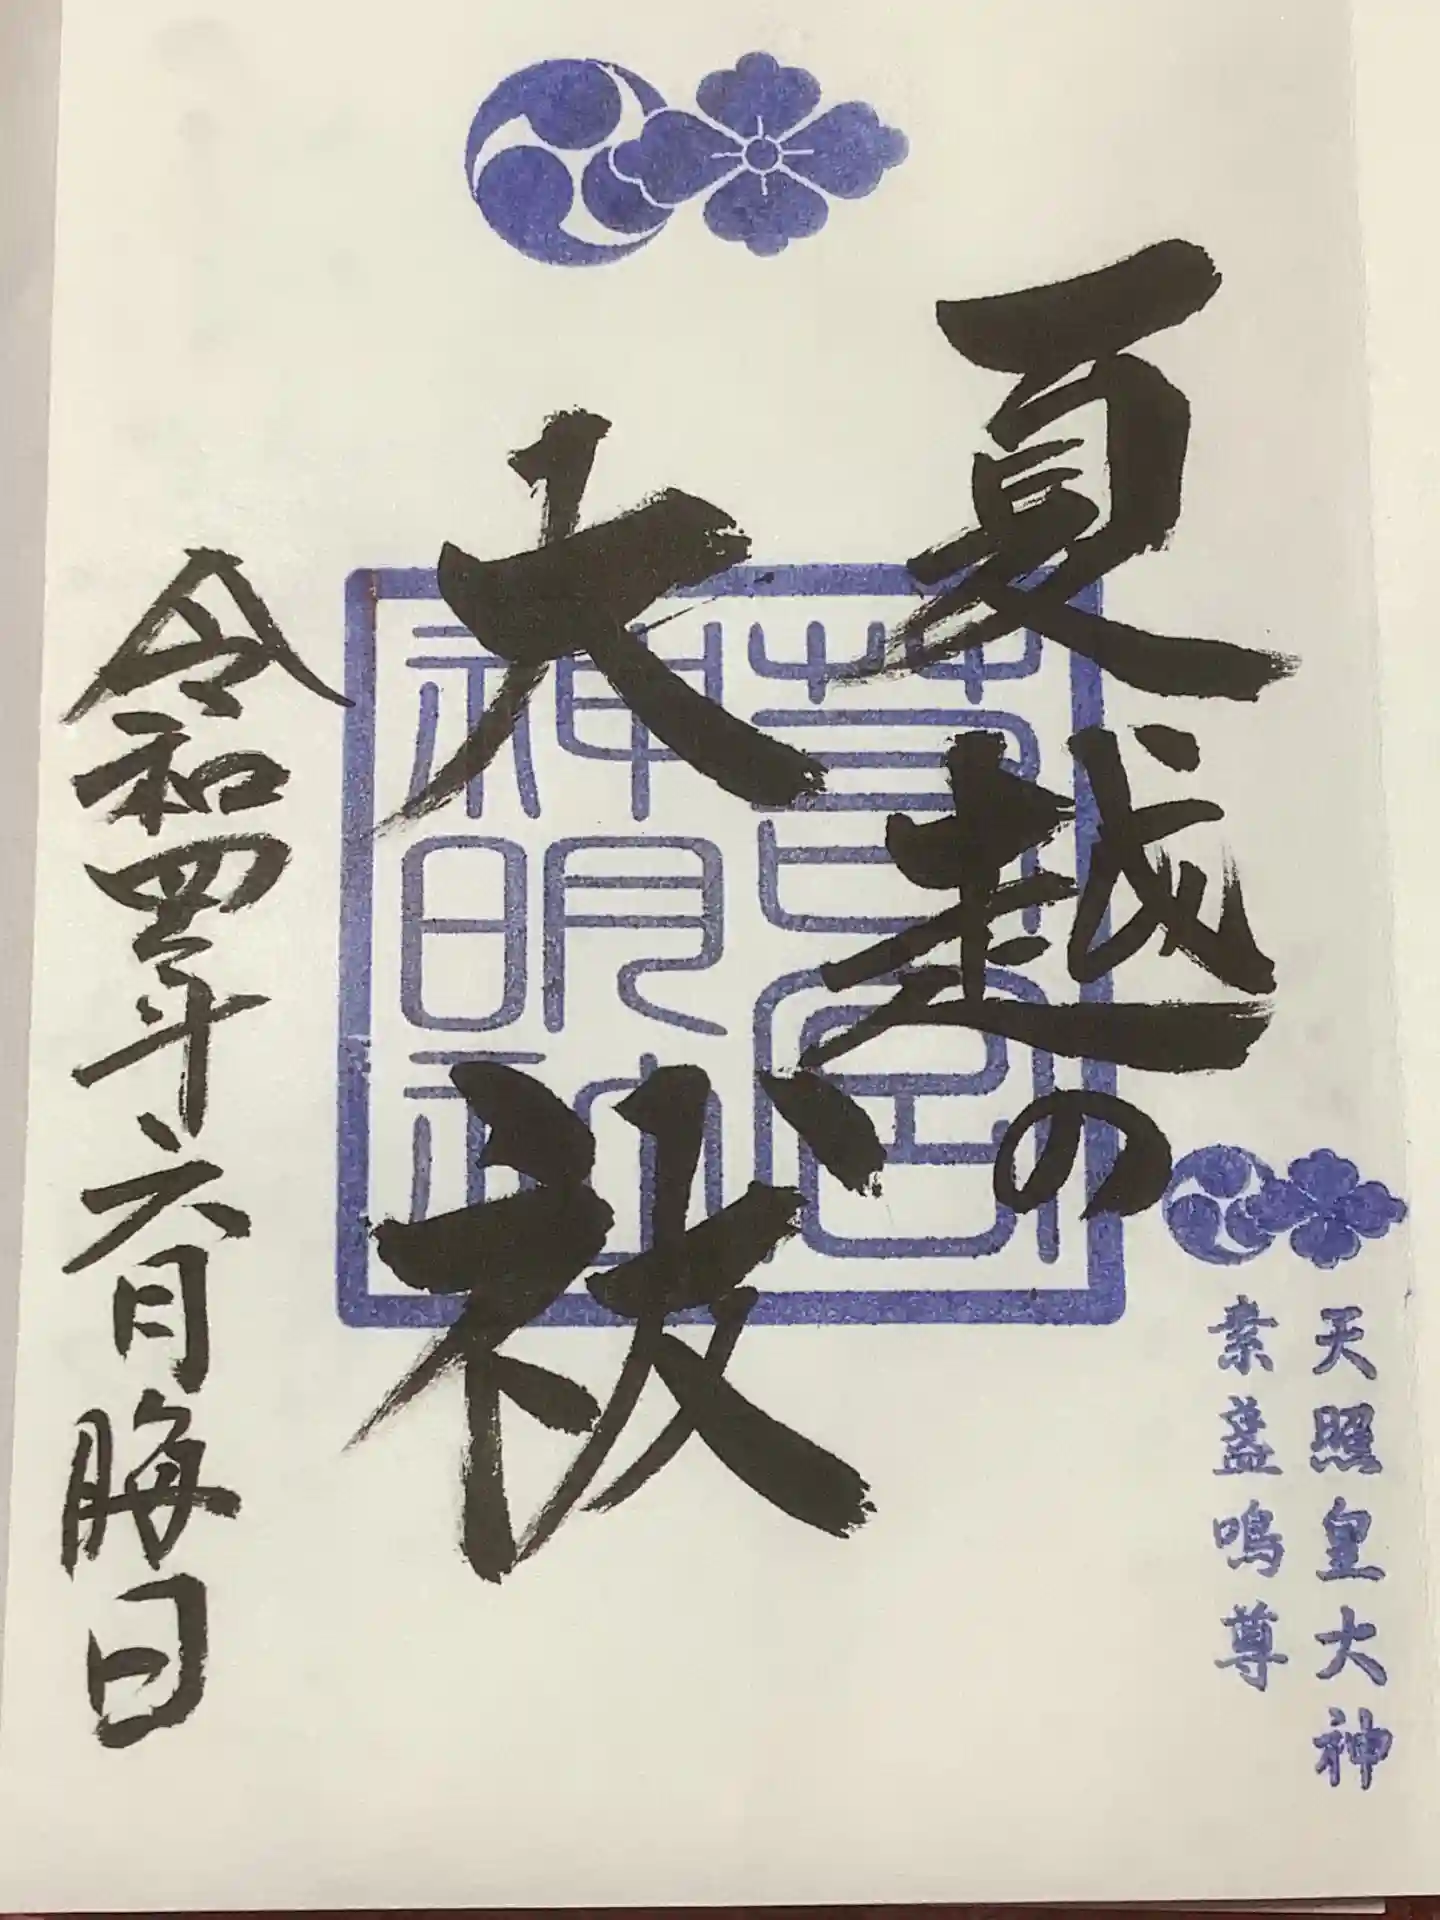 天照皇大神
素盞嗚尊
夏越の
大祓
令和四年六月晦日
神明社